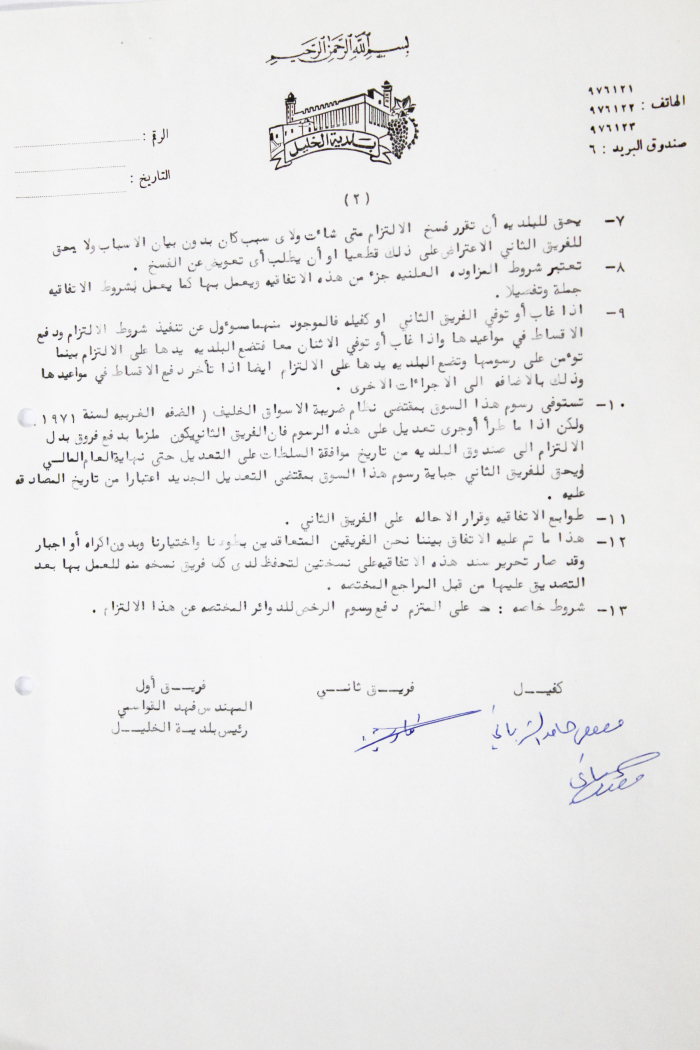 بسم الله الرحمن الرحيم
بلدية الخليل
٩٧٦١٢١
الهاتف : ٩٧٦١٢٢
٩٧٦١٢٣
صندوق البريد : ٦
الرقم :
التاريخ :
(٢)
٧- يحق للبلديه أن تقرر فسخ الالتزام متى شاءت ولاى سبب كان بدون بيان الاسباب ولا يحق
للفريق الثاني الاعتراض على ذلك قطعيا او أن يطلب أى تعويض عن الفسخ .
٨- تعتبر شروط المزاوده العلنيه جزء من هذه الاتفاقيه ويعمل بها كما يعمل بشروط الاتفاقيه
جملة وتفصيلا .
٩- اذا غاب أو توفي الفريق الثاني او كفيله فالموجود منهما مسؤول عن تنفيذ شروط الالتزام ودفع
الاقساط في مواعيدها واذا غاب أو توفي الاثنان معا فتضع البلديه يدها على الالتزام بينما
تؤمن على رسومها وتضع البلديه يدها على الالتزام ايضا اذا تأخر دفع الاقساط في مواعيدها
وذلك بالاضافه الى الاجراءات الاخرى .
١٠- تستوفى رسوم هذا السوق بمقتضى نظام ضريبة الاسواق الخليف ( الضفه الغربيه لسنة ١٩٧١ .
ولكن اذا ما طرأ أوجرى تعديل على هذه الرسوم فان الفريق الثانويكون ملزما بدفع فروق بدل
الالتزام الى صندوق البلديه من تاريخ موافقة السلطات على التعديل حتى نهاية العام المالي
ويحق للفريق الثاني جباية رسوم هذا السوق بمقتضى التعديل الجديد اعتبارا من تاريخ المصادقه
عليه .
١١- طوابع الاتفاقيه وقرار الاحاله على الفريق الثاني .
١٢- هذا ما تم عليه الاتفاق بيننا نحن الفريقين المتعاقدين بطوعنا واختيارنا وبدون اكراه أو اجبار
وقد صار تحرير سند هذه الاتفاقيه على نسختين لتحفظ لدى كل فريق نسخه منه للعمل بها بعد
التصديق عليها من قبل المراجع المختصه .
١٣- شروط خاصه : على المتزم دفع رسوم الرخص للدوائر المختصه عن هذا الالتزام .
كفيـــل فريــق ثانــي فريــق أول
المهندس فهد القواسمي
رئيس بلديــة الخليــل
حامد الشرباتي